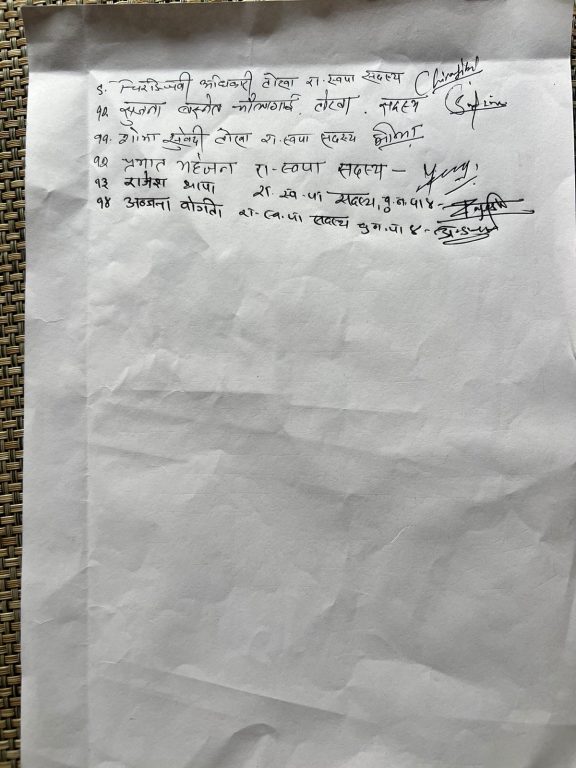 ९. चिरञ्जिवी अधिकारी टोखा रा.स्वपा सदस्य
१०. सुजता बस्नेत टोखा. सदस्य
११. शोभा सुवेदी टोखा रा.स्वपा सदस्य शोभा
१२ प्रभात महर्जन रा-स्वपा सदस्य -
१३ राजेश थापा रा. स्व. पा सदस्य, बु.न.पा ४ -
१४ अञ्जना वोगटी रा. स्व. पा सदस्य बु.न.पा ४ -